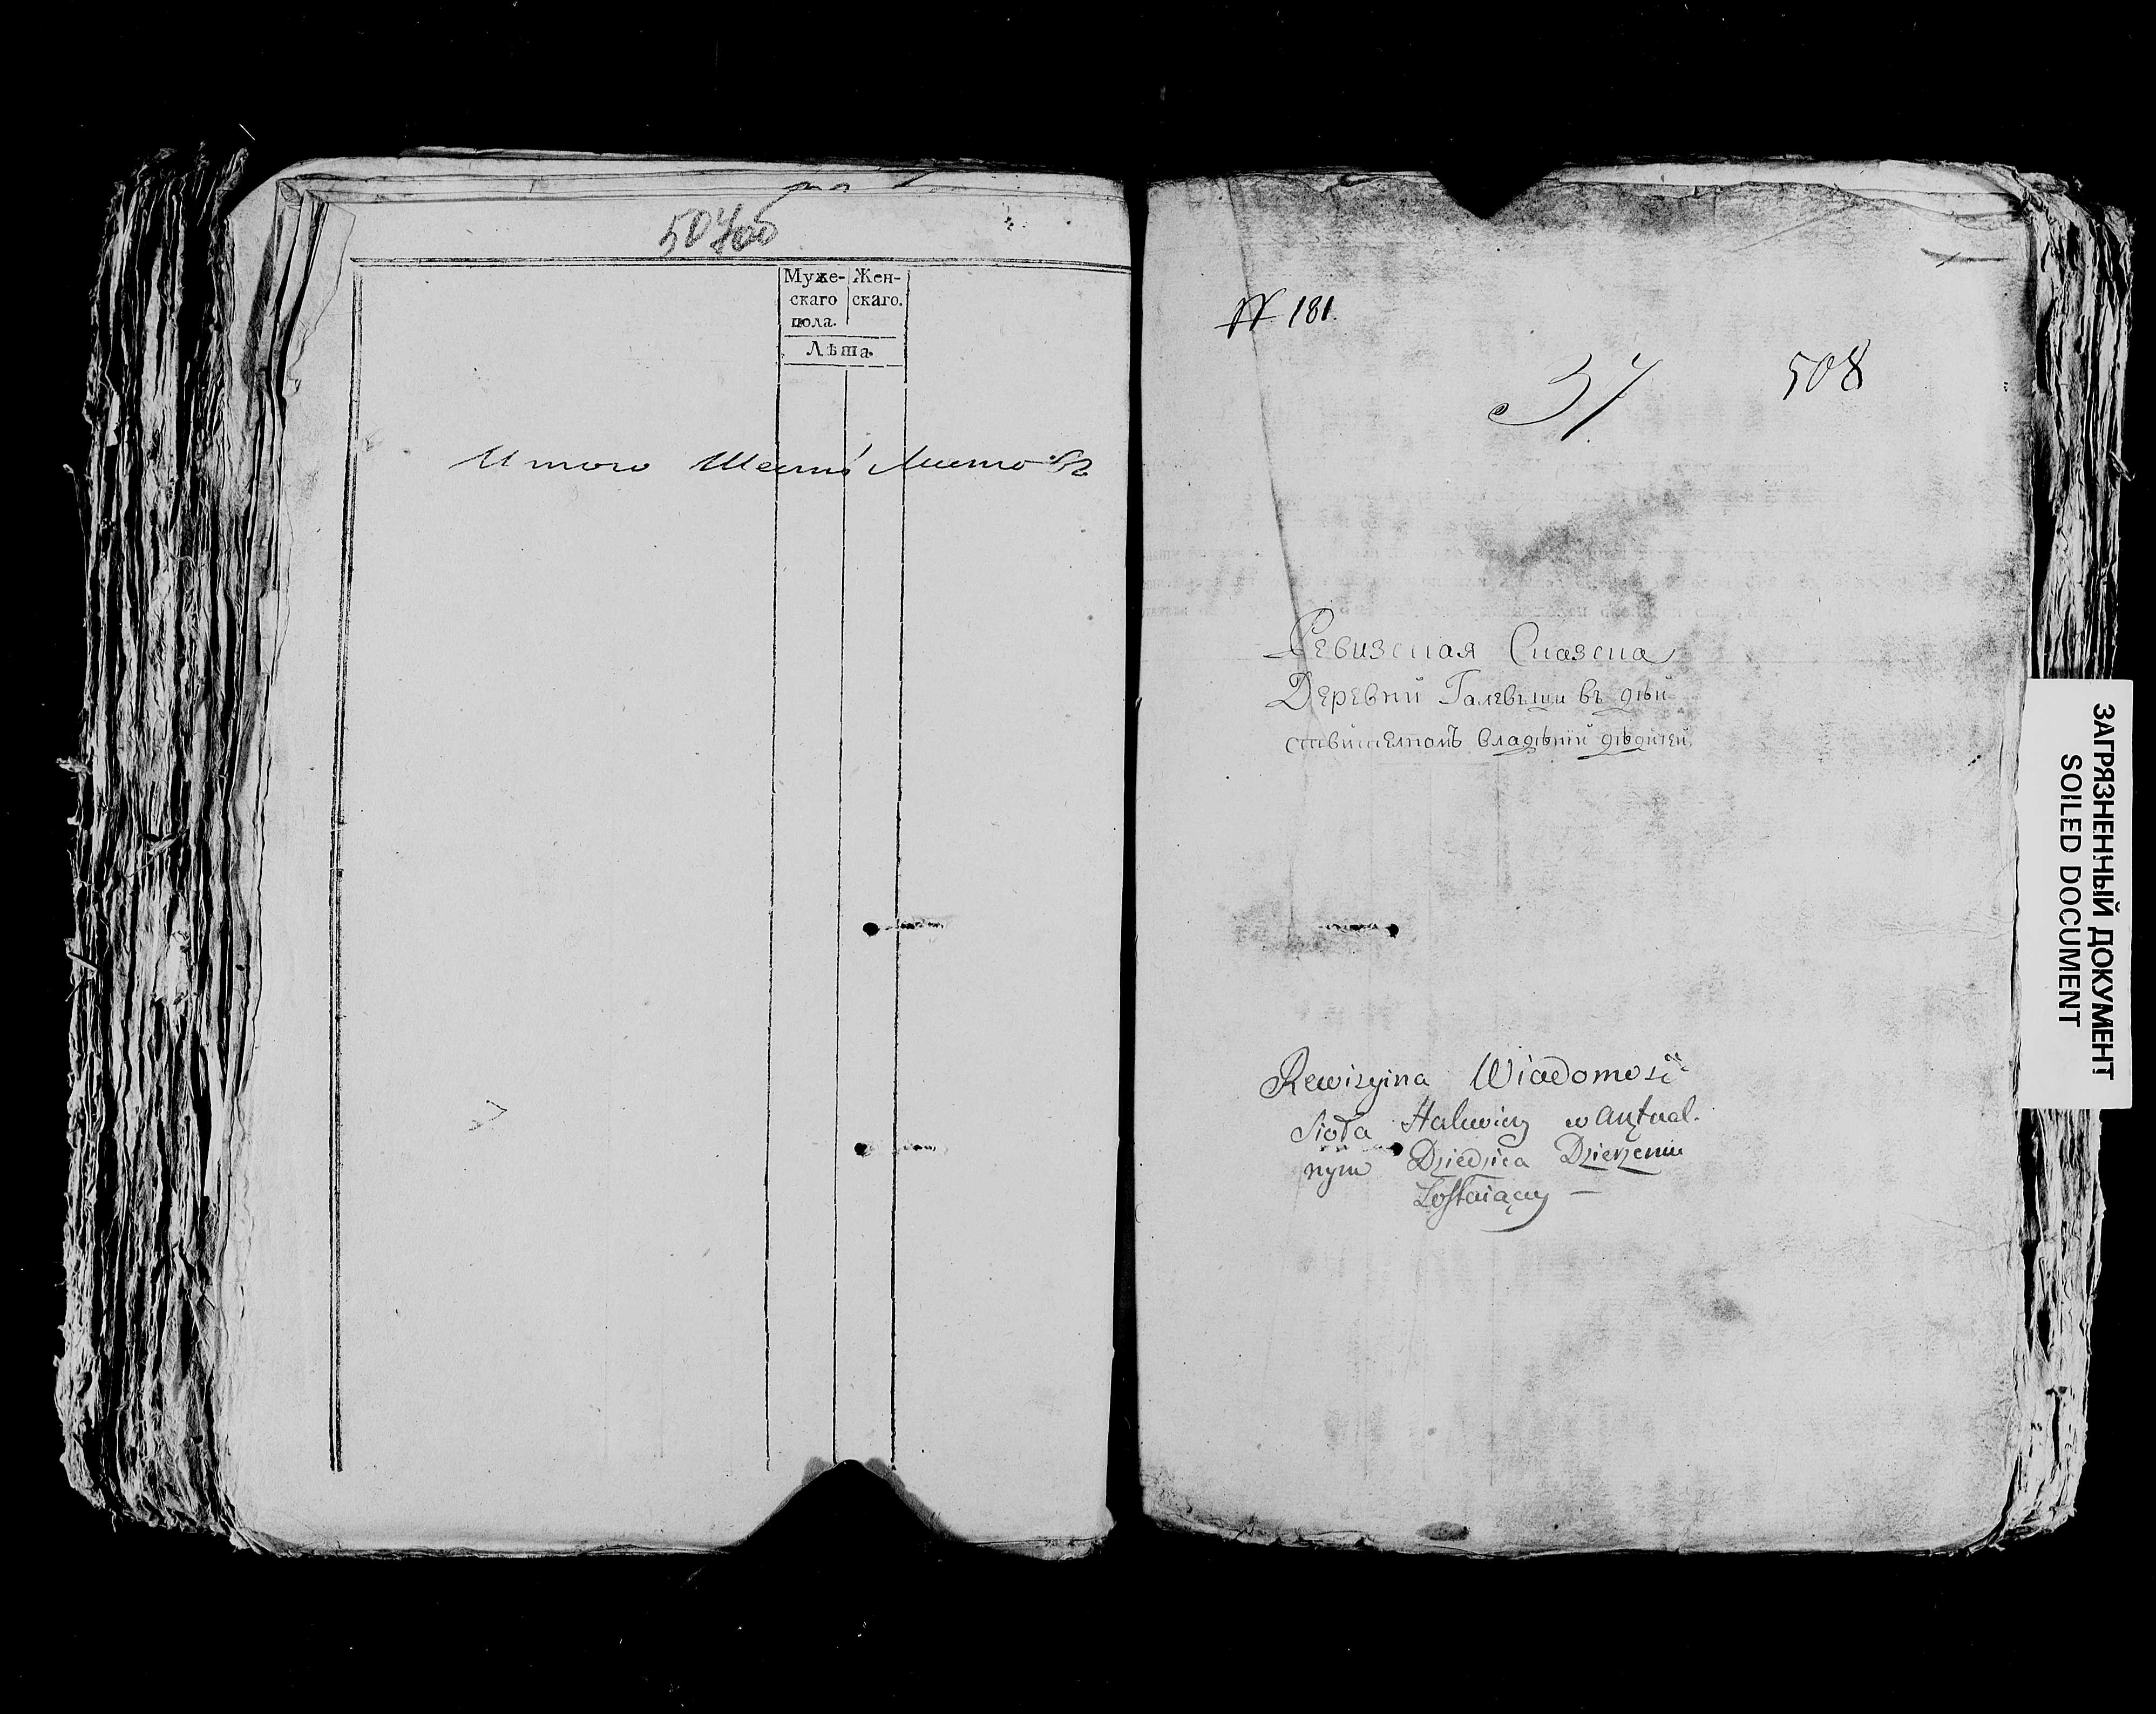 507об
Муже- Жен-
скаго скаго.
пола.
Лѣта.
Итого Шесть Листовъ
N 181.
37 508
Ревизская Сказка
Деревни Галевичи въ дѣй-
ствителномъ владѣнiи
Rewizyina Wiadomość
Sioła Halewicz w Aktual-
nym Dziedzica Dzierżeniu
Zostaiący —
ЗАГРЯЗНЕННЫЙ ДОКУМЕНТ
SOILED DOCUMENT